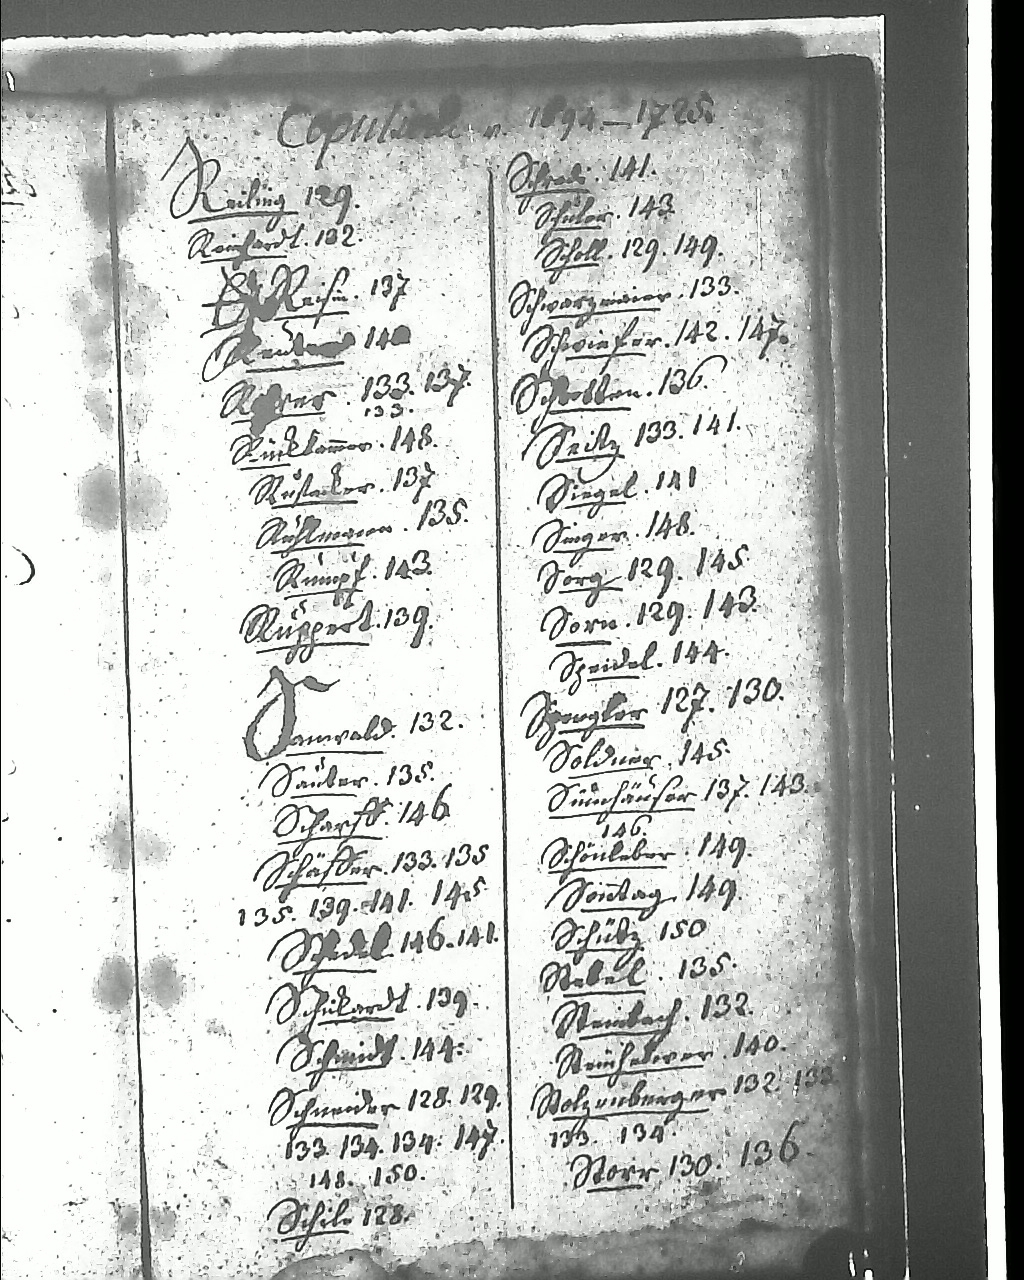 Copulirte v. 1694 - 1725.
Reiling 129.
Reinhardt. 132.
Reihn. 137
Reuter 140
133. 137.
133.
Rückhammer. 148.
Rustacker. 137
Ruhlmann. 135.
Rumpf. 143.
Ruppert. 139.
Sanwald. 132.
Sauter. 135.
Scharff. 146
Schäffer. 133. 135
135. 139. 141. 145
Schedel 146. 141.
Schikardt. 139.
Schmidt. 144.
Schneider 128. 129.
133. 134. 134. 147.
148. 150.
Schile 128.
141.
Schuler. 143
Scholl. 129. 149.
Schwarzmaier. 133.
Schwiefer. 142. 147.
Schletten. 136.
Seitz 133. 141.
Siegel. 141
Singer. 148.
Sorg 129. 145
Sorn. 129. 143.
Speidel. 144.
Spengler 127. 130.
Soldner. 145.
Sünnhäuser 137. 143.
146.
Schönleber. 149.
Sontag 149.
Schütz 150
Stebel. 135.
Steinbach. 132.
140.
Stolzenberger 132 133
133. 134.
Storr 130. 136.